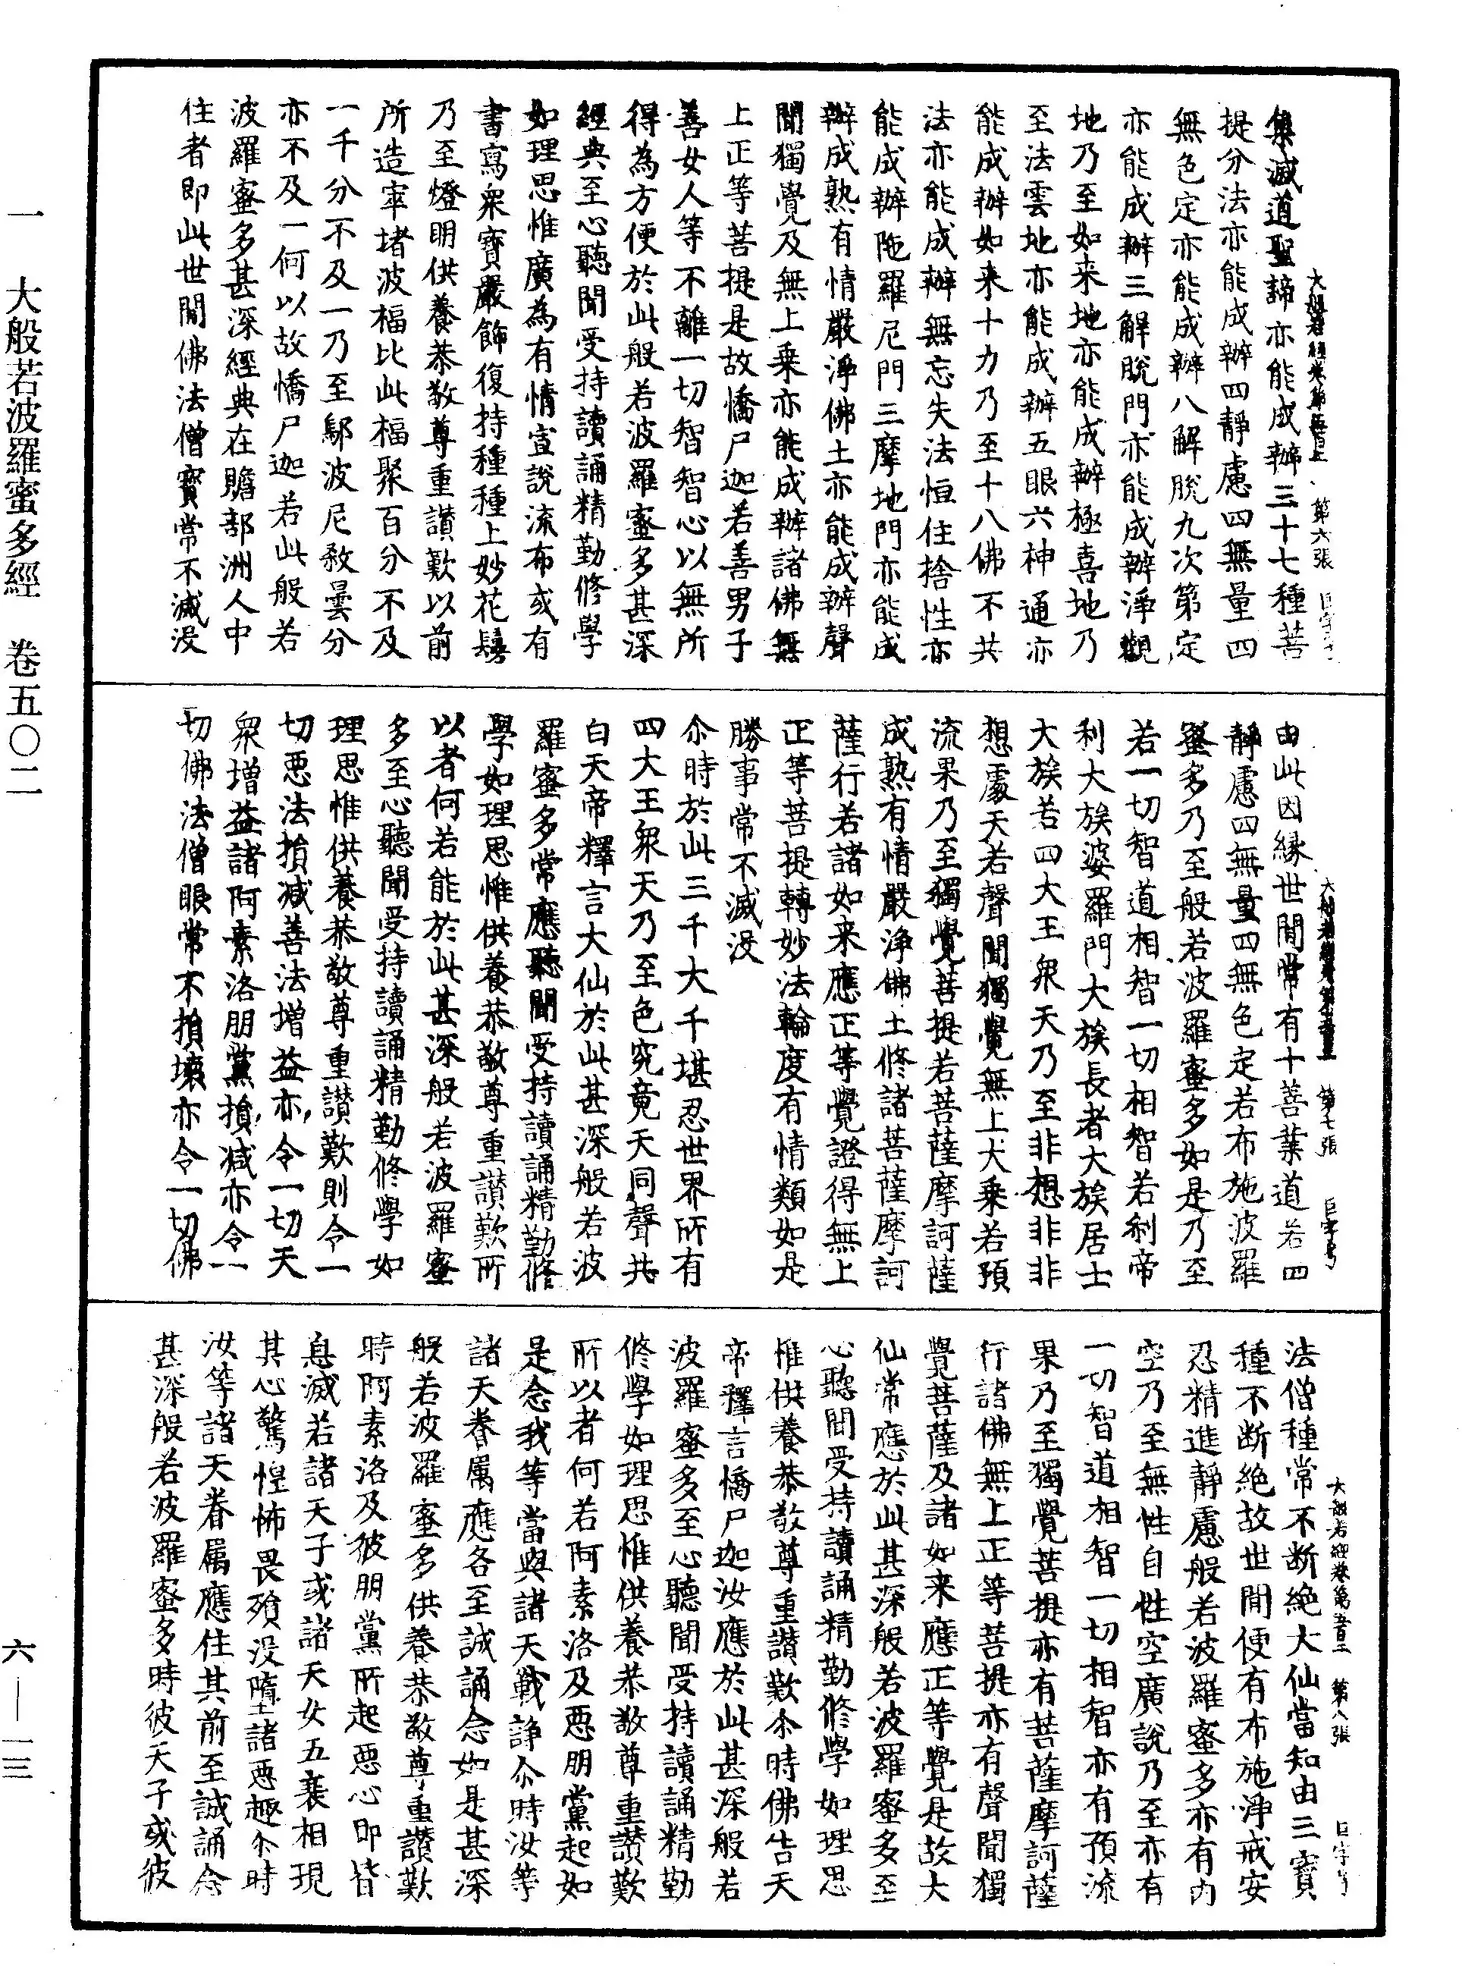 集滅道聖諦亦能成辦三十七種菩
提分法亦能成辦四靜慮四無量四
無色定亦能成辦八解脫九次第定
亦能成辦三解脫門亦能成辦淨觀
地乃至如来地亦能成辦極喜地乃
至法雲地亦能成辦五眼六神通亦
能成辦如来十力乃至十八佛不共
法亦能成辦無忘失法恒住捨性亦
能成辦陁羅尼門三摩地門亦能成
辦成熟有情嚴淨佛土亦能成辦聲
聞獨覺及無上乗亦能成辦諸佛無
上正等菩提是故憍尸迦若善男子
善女人等不離一切智智心以無所
得為方便於此般若波羅蜜多甚深
經典至心聽聞受持讀誦精勤修學
如理思惟廣為有情宣說流布或有
書寫衆寶嚴飾復持種種上妙花鬘
乃至燈明供養恭敬尊重讃歎以前
所造窣堵波福比此福聚百分不及
一千分不及一乃至鄔波尼殺曇分
亦不及一何以故憍尸迦若此般若
波羅蜜多甚深經典在贍部洲人中
住者即此世間佛法僧寶常不滅没
大般若經卷第五百二 第六張
由此因縁世間常有十善業道若四
靜慮四無量四無色定若布施波羅
蜜多乃至般若波羅蜜多如是乃至
若一切智道相智一切相智若刹帝
利大族婆羅門大族長者大族居士
大族若四大王衆天乃至非想非非
想處天若聲聞獨覺無上大乗若預
流果乃至獨覺菩提若菩薩摩訶薩
成熟有情嚴淨佛土修諸菩薩摩訶
薩行若諸如来應正等覺證得無上
正等菩提轉妙法輪度有情類如是
勝事常不滅没
尒時於此三千大千堪忍世界所有
四大王衆天乃至色究竟天同聲共
白天帝釋言大仙於此甚深般若波
羅蜜多常應聽聞受持讀誦精勤修
學如理思惟供養恭敬尊重讃歎所
以者何若能於此甚深般若波羅蜜
多至心聽聞受持讀誦精勤修學如
理思惟供養恭敬尊重讃歎則令一
切惡法損减善法增益亦令一切天
衆增益諸阿素洛朋黨損减亦令一
切佛法僧眼常不損壞亦令一切佛
大般若經卷第五百二 第七張 巨字号
法僧種常不断絶大仙當知由三寶
種不断絶故世間便有布施淨戒安
忍精進靜慮般若波羅蜜多亦有内
空乃至無性自性空廣說乃至亦有
一切智道相智一切相智亦有預流
果乃至獨覺菩提亦有菩薩摩訶薩
行諸佛無上正等菩提亦有聲聞獨
覺菩薩及諸如来應正等覺是故大
仙常應於此甚深般若波羅蜜多至
心聽聞受持讀誦精勤修學如理思
惟供養恭敬尊重讃歎尒時佛告天
帝釋言憍尸迦汝應於此甚深般若
波羅蜜多至心聽聞受持讀誦精勤
修學如理思惟供養恭敬尊重讃歎
所以者何若阿素洛及惡朋黨起如
是念我等當與諸天戰諍尒時汝等
諸天眷属應各至誠誦念如是甚深
般若波羅蜜多供養恭敬尊重讃歎
時阿素洛及彼朋黨所起惡心即皆
息滅若諸天子或諸天女五衰相現
其心驚惶怖畏殞没墮諸惡趣尒時
汝等諸天眷属應住其前至誠誦念
甚深般若波羅蜜多時彼天子或彼
大般若經卷第五百二 第八張 巨字号
一 大般若波羅蜜多經 卷五〇二
六—一三